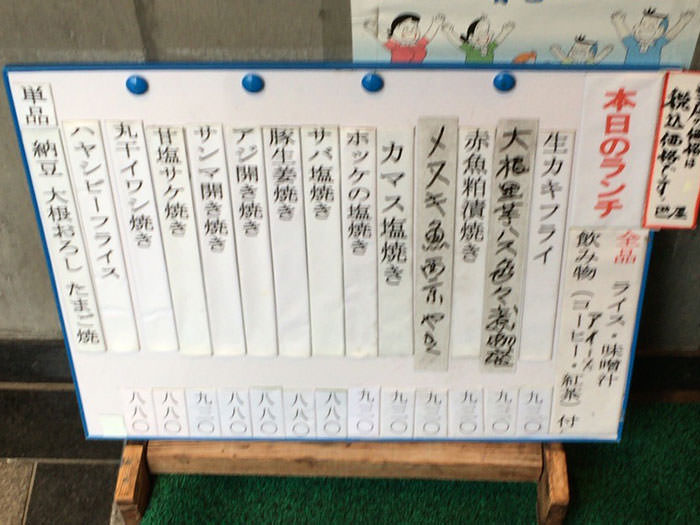 税込価格です。
本日のランチ
全品 ライス・味噌汁
アイス
飲み物（コーヒー・紅茶）付
生カキフライ 九二〇
大根里芋ハス色々 九二〇
赤魚粕漬焼き 九二〇
メヌキ魚西京やき 九二〇
カマス塩焼き 九二〇
ホッケの塩焼き 九二〇
サバ塩焼き 八八〇
豚生姜焼き 八八〇
アジ開き焼き 八八〇
サンマ開き焼き 八八〇
甘塩サケ焼き 九二〇
丸干イワシ焼き 八八〇
ハヤシビーフライス 八八〇
単品 納豆 大根おろし たまご焼